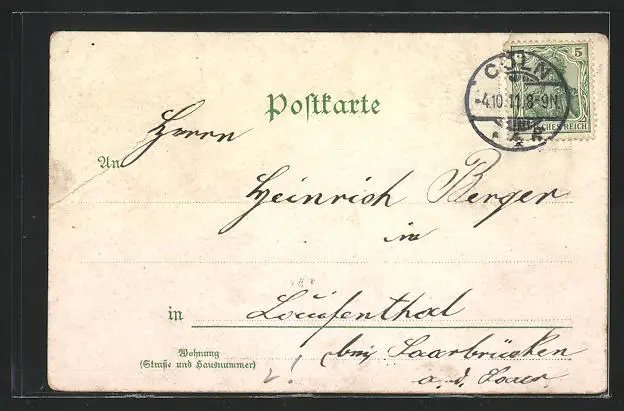 Postkarte
5
CÖLN
-4.10.11.8-9N.
REICH
Herrn
An
Heinrich Berger
in
in Louisenthal
Wohnung
(Straße und Hausnummer)
bei Saarbrücken
a. d. Saar.